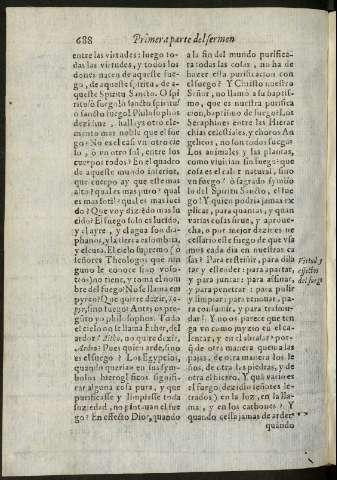 688 Primera parte del sermon
entre las virtudes: luego to-
das las virtudes, y todos los
dones nacen de aqueste fue-
go, de aqueste spiritu, de a-
queste Spiritu Sancto. O spi
ritu! ò fuego! ò sancto spiritu!
ò sancto fuego! Philosophos
dezidme, hallays otro ele-
mento mas noble que el fue
go? No es el casi vn otro cie
lo, ò vn otro sol, entre los
cuerpos todos? En el quadro
de aqueste mundo inferior,
que cuerpo ay que este mas
alto? qual es mas puro? qual
es mas sotil? qual es mas luci
do? Que voy dezido mas lu
cido? El fuego solo es lucido,
y el ayre, y el agua son dia-
phanos, y la tierra es sombria,
y escura. El cielo supremo (ò
señores Theologos que nin
guno le conoce sino voso-
tros) no tiene, y toma el nom
bre del fuego? No se llama em
pyreo? Que quiere dezir,
pyr, sino fuego? Antes os pregu
to yo philosophos. Toda
el cielo no le llama Ether, del
ardor? no quire dezir,
Ardeo? Pues quien arde, sino
es el fuego? Los Egypcios,
quando querian en sus sym-
bolos hieroglificos signifi-
car alguna cosa pura, y que
purificasse y limpiasse toda
suziedad, no pintauan el fue
go? En effecto Dios, quando
a la fin del mundo purifica-
ra todas las cosas, no ha de
hazer esta purificacion con
el fuego? Y Christo nuestro
Señor, no llamò a su baptis-
mo, que es nuestra purifica
cion, baptismo de fuego? Los
Seraphines entre las Hierar
chias celestiales, y choros An
gelicos, no son todos fuego?
Los animales y las plantas,
como viuirian sin fuego? que
cosa es el calor natural, sino
vn fuego? ò sagrado symbo
lo del Spiritu Sancto, el fue
go! Y quien podria jamas ex
plicar, para quantas, y quan
varias cosas sirue, y aproue-
cha, o por mejor dezir, es ne
cessario este fuego de que vsa
mos cada dia en nuestras ca
sas? Para restreñir, para dila
tar y estender: para apartar,
y para juntar: para assinar,
y para penetrar: para pulir
y limpiar: para renouar, pa-
ra consumir, para trasmu-
dar? Y no os parece que ten
ga vn como juyzio en el ca-
lentar, y en el abrasar? por-
que de otra manera quema las
pajas, de otra manera los le
ños, de otra las piedras, y de
otra el hierro. Y quã vario es
el fuego (dezidlo señores le-
trados) en la luz, en la lla-
ma, y en los carbones? Y
quando cessa jamas de arder
quãdo
Virtud y
effectos
del fuego